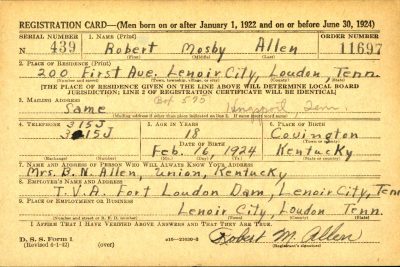 REGISTRATION CARD—(Men born on or after January 1, 1922 and on or before June 30, 1924)
SERIAL NUMBER 1. NAME (Print) ORDER NUMBER
N 439 Robert Mosby Allen 11697
(First) (Middle) (Last)
2. PLACE OF RESIDENCE (Print)
200 First Ave. Lenoir City, Loudon Tenn.
(Number and street) (Town, township, village, or city) (County) (State)
[THE PLACE OF RESIDENCE GIVEN ON THE LINE ABOVE WILL DETERMINE LOCAL BOARD
JURISDICTION; LINE 2 OF REGISTRATION CERTIFICATE WILL BE IDENTICAL]
3. MAILING ADDRESS
Same Box 595
[Mailing address if other than place indicated on line 2. If same insert word same]
4. TELEPHONE 5. AGE IN YEARS 6. PLACE OF BIRTH
315J 18 Covington
3 15J DATE OF BIRTH (Town or county)
Feb. 16, 1924 Kentucky
(Exchange) (Number) (Mo.) (Day) (Yr.) (State or country)
7. NAME AND ADDRESS OF PERSON WHO WILL ALWAYS KNOW YOUR ADDRESS
Mrs. B. N. Allen, Union, Kentucky
8. EMPLOYER'S NAME AND ADDRESS
T.V.A. Fort Loudon Dam, Lenoir City, Tenn
9. PLACE OF EMPLOYMENT OR BUSINESS
Lenoir City, Loudon Tenn.
(Number and street or R. F. D. number) (Town) (County) (State)
I AFFIRM THAT I HAVE VERIFIED ABOVE ANSWERS AND THAT THEY ARE TRUE.
D. S. S. Form 1
(Revised 6-1-42) (over) Robert M. Allen
(Registrant's signature)